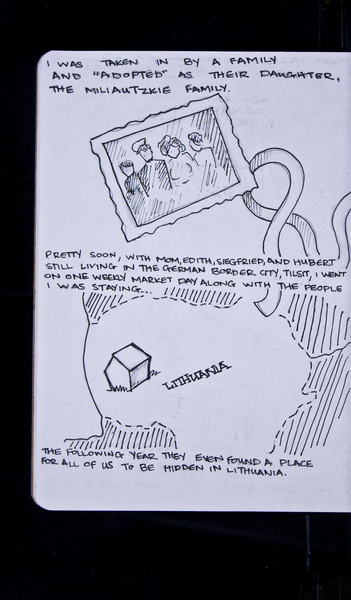 I WAS TAKEN IN BY A FAMILY
AND "ADOPTED" AS THEIR DAUGHTER,
THE MILIAUTZKIE FAMILY.
PRETTY SOON, WITH MOM, EDITH, SIEGFRIED, AND HUBERT
STILL LIVING IN THE GERMAN BORDER CITY, TILSIT, I WENT
ON ONE WEEKLY MARKET DAY ALONG WITH THE PEOPLE
I WAS STAYING...
LITHUANIA
THE FOLLOWING YEAR THEY EVEN FOUND A PLACE
FOR ALL OF US TO BE HIDDEN IN LITHUANIA.